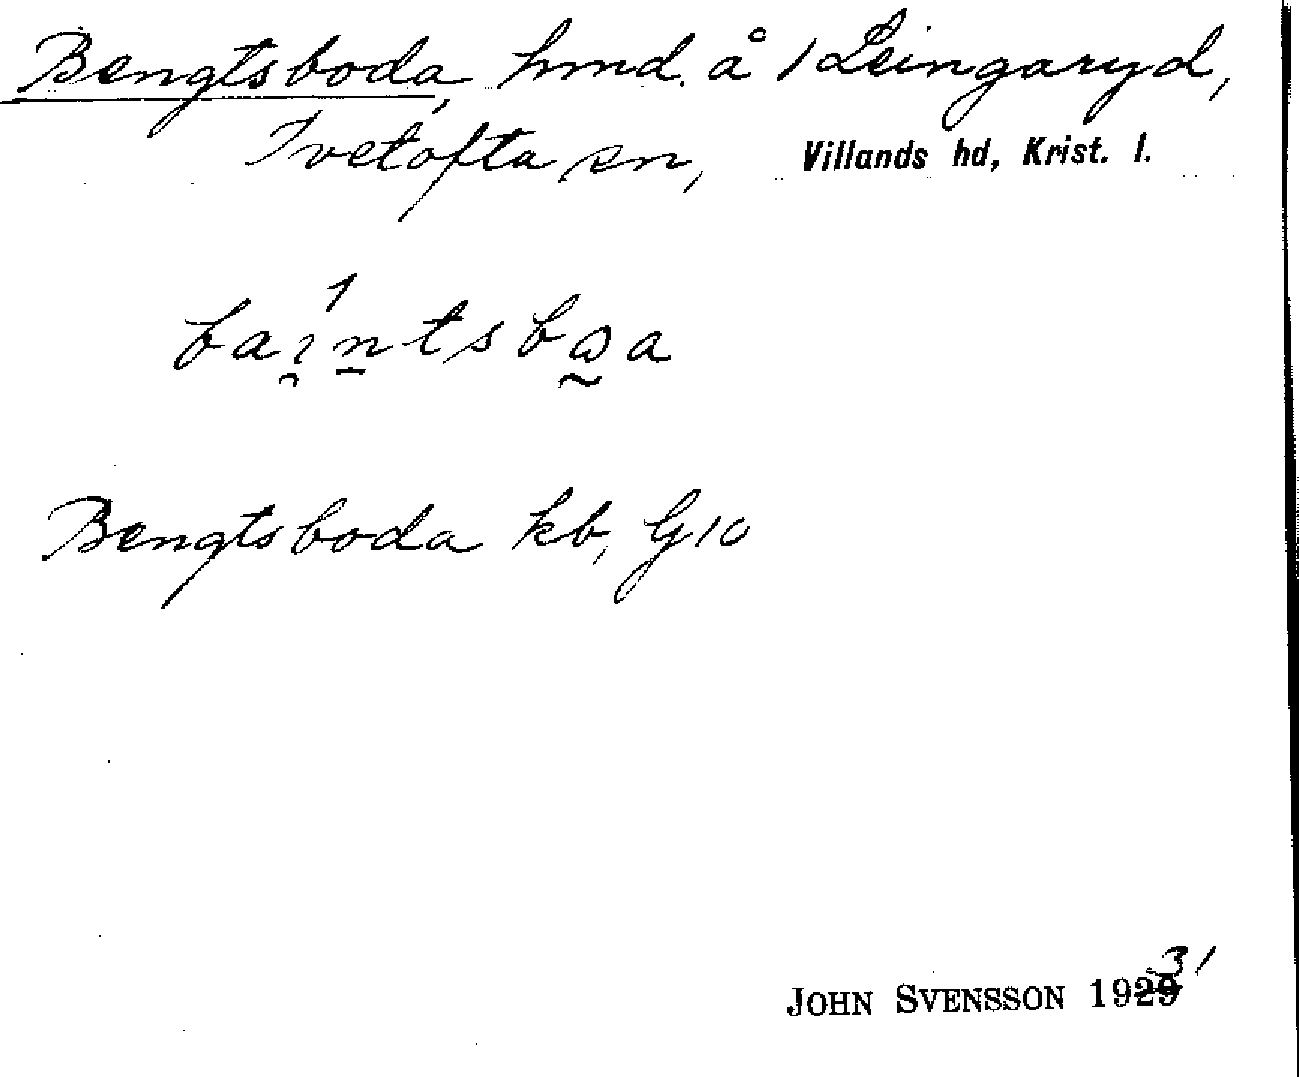 Bengtsboda, hmd. å 1 Leingaryd,
Ivetofta sn, Villands hd, Krist. l.
Bengtsboda kb, G10
JOHN SVENSSON 1929 31